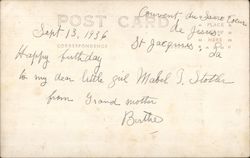 POST CARD
Convent du Sacre Coeur
de Jesus
St Jacques
Sept 13, 1936
CORRESPONDENCE
PLACE
STAMP
HERE
Happy birthday
to my dear little girl Mabel T. Stotler
from Grand mother
Berthe